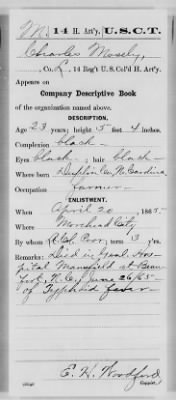 M. 14 H. Art'y. U.S.C.T.
Charles Mosely
, Co. L, 14 Reg't U.S. Col'd H. Art'y.
Appears on
Company Descriptive Book
of the organization named above.
DESCRIPTION.
Age 23 years; height 5 feet 4 inches.
Complexion black
Eyes black; hair black
Where born Dupplin Co. N. Carolina
Occupation farmer
ENLISTMENT.
When April 20, 1865.
Where Morehead City
By whom Poor; term 3 y'rs.
Remarks: Died in Genl. Hos-
pital Mansfield at Beau-
fort, N.C. June 26/65
of Typhoid fever
E. H. Woodford
Copyist.